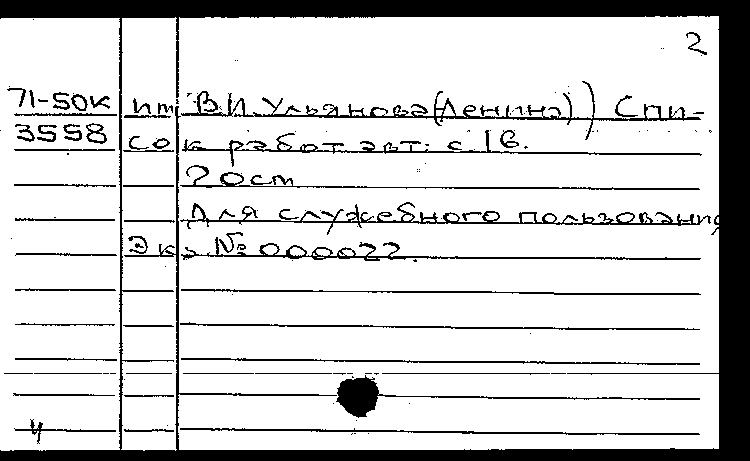 2
71-50к им. В.И.Ульянова(Ленина)) Спи-
3558 сок работ авт. с.16.
20cm
Для служебного пользования
Экз. № 000022.
4